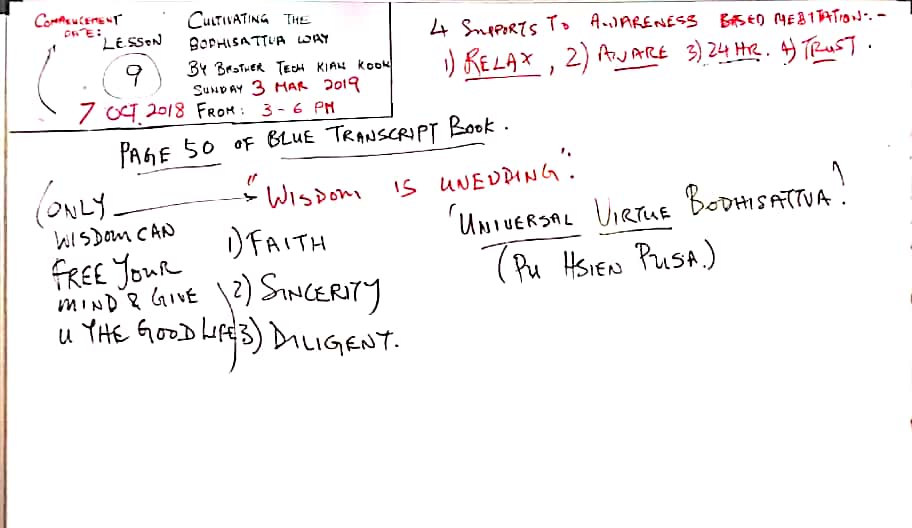 COMMENCEMENT
DATE:
LESSON
9
7 OCT. 2018
CULTIVATING THE
BODHISATTVA WAY
BY BROTHER TEOH KIAN KOON
SUNDAY 3 MAR 2019
FROM: 3-6 PM
4 SUPPORTS TO AWARENESS BASED MEDITATION:-
1) RELAX, 2) AWARE 3) 24 HR. 4) TRUST.
PAGE 50 OF BLUE TRANSCRIPT BOOK.
"WISDOM IS UNENDING".
(ONLY
WISDOM CAN
FREE YOUR
MIND & GIVE
U THE GOOD LIFE)
1) FAITH
2) SINCERITY
3) DILIGENT.
'UNIVERSAL VIRTUE BODHISATTVA!'
(PU HSIEN PUSA.)